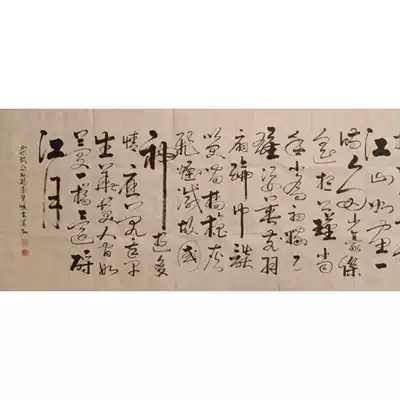 江山如画一
时多少豪杰
遥想公瑾当
年小乔初嫁了
雄姿英发羽
扇纶巾谈
笑间樯橹灰
飞烟灭故国
神游多
情应笑我早
生华发人间如
梦一樽还酹
江月